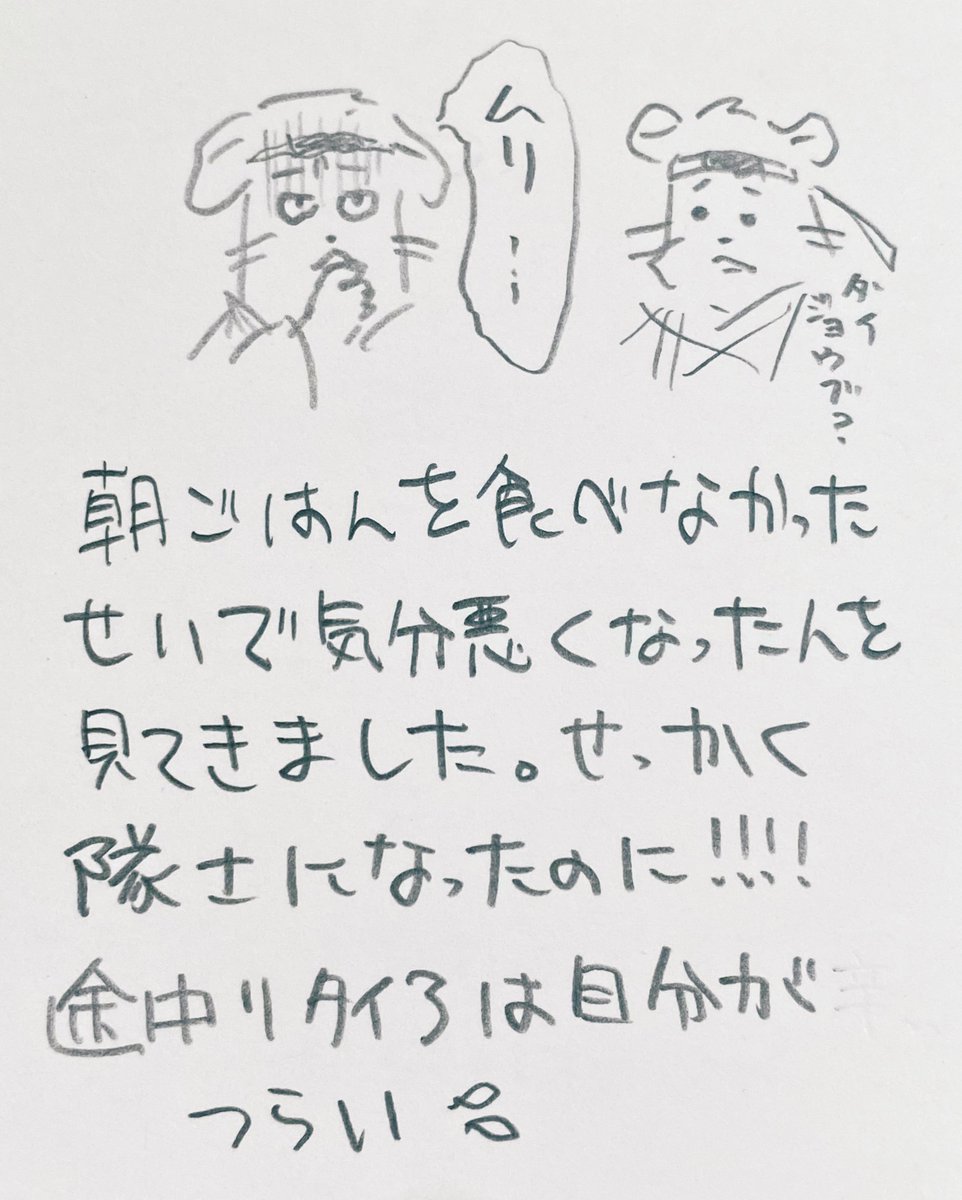 ムリ…
ダイ
ジョウブ？
朝ごはんを食べなかった
せいで気分悪くなったんを
見てきました。せっかく
隊士になったのに!!!!
途中リタイアは自分が
つらい